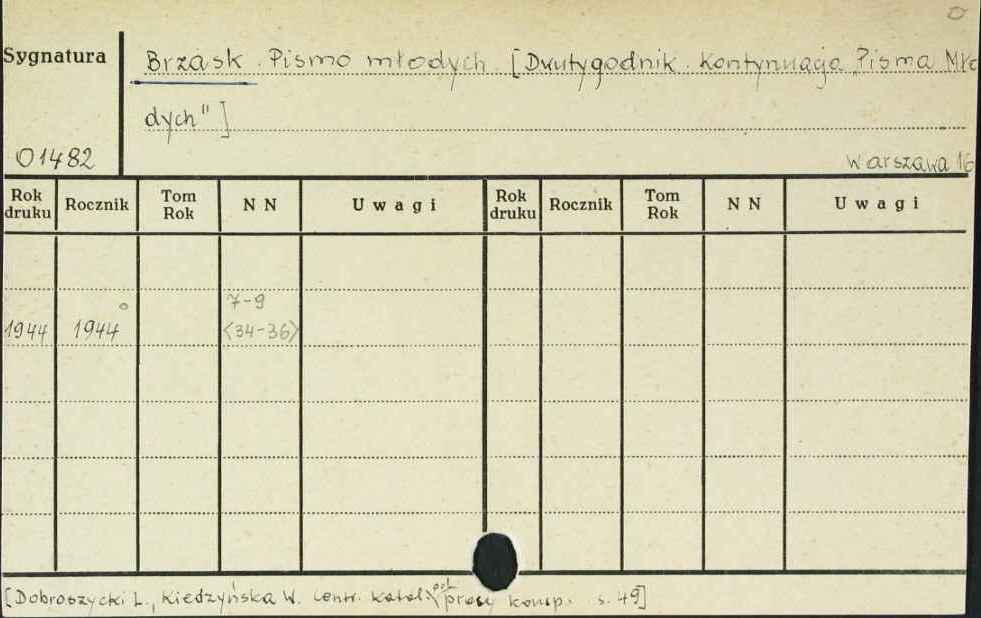 Sygnatura
Brzask. Pismo młodych. [Dwutygodnik. Kontynuacja „Pisma Mło
dych"]
01482
Warszawa 16
Rok druku Rocznik Tom Rok NN Uwagi Rok druku Rocznik Tom Rok NN Uwagi
7-9
1944 1944 <34-36>
[Dobroszycki L., Kiedzyńska W. Centr. katal. pol. prasy konsp. s. 49]